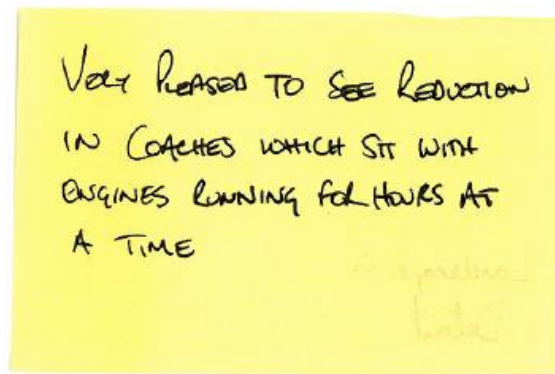 VERY PLEASED TO SEE REDUCTION
IN COACHES WHICH SIT WITH
ENGINES RUNNING FOR HOURS AT
A TIME